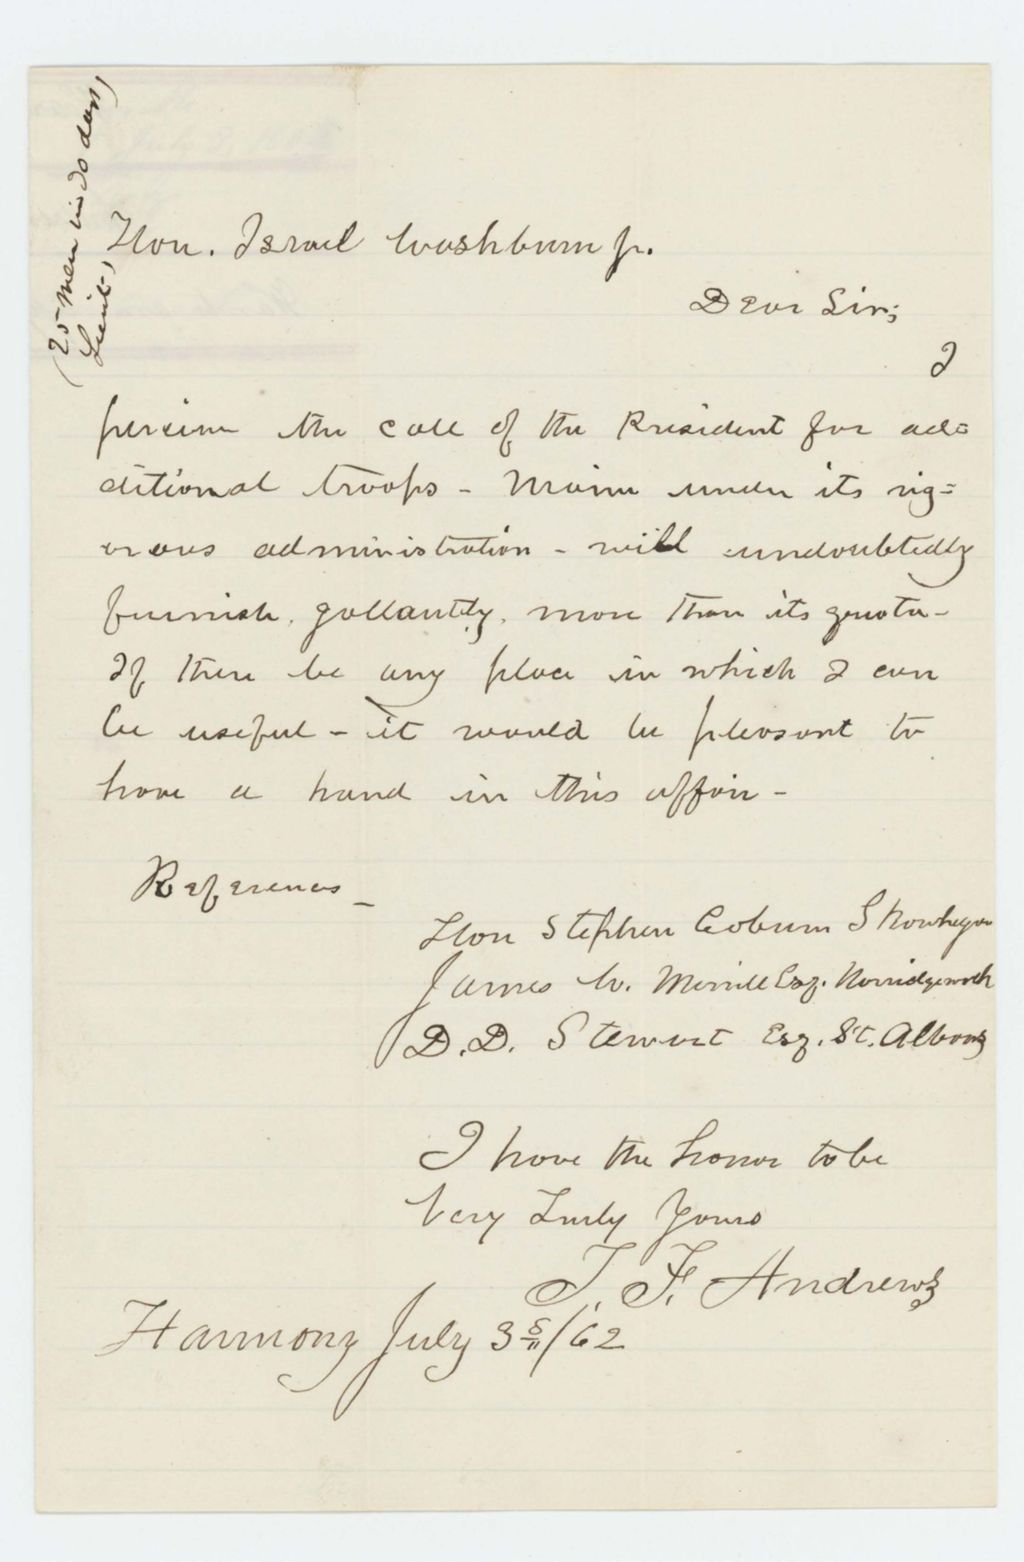 (25 men in 30 days)
Lieut.,
Hon. Israel Washburn Jr.
Dear Sir;
I
perceive the call of the President for ad=
ditional troops - Maine under its vig=
orous administration - will undoubtedly
furnish, gallantly, more than its quota -
If there be any place in which I can
be useful - it would be pleasant to
have a hand in this affair -
References -
Hon Stephen Coburn Skowhegan
James W. Merrill Esq. Norridgewock
D. D. Stewart Esq. St. Albans
I have the honor to be
Very Truly Yours
T. F. Andrews
Harmony July 3 /62